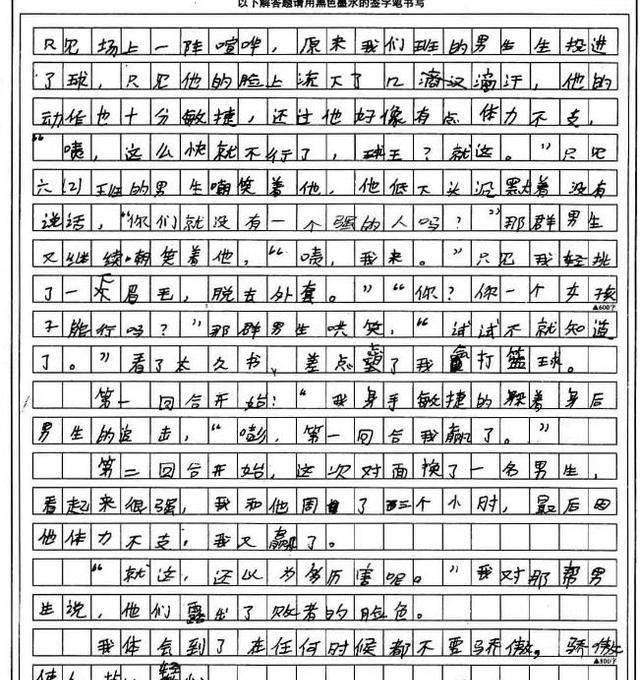 以下解答题请用黑色墨水的签字笔书写
只见场上一阵喧哗，原来我们班的男生生投进
了球，只见他的脸上流大了几滴汉滴汗，他的
动作也十分敏捷，还过他好像有点体力不支，
“咦，这么快就不行了，球王？就这。”只见
六(2)班的男生嘲笑着他，他低下头沉默着没有
说话，“你们就没有一个强的人吗？”那群男生
又继续嘲笑着他，“咦，我来。”只见我轻挑
了一下眉毛，脱去外套。”“你？你一个女孩
▲600字
子能行吗？”那群男生哄笑，“试试不就知道
了。”看了太久书，差点忘了我打篮球。
第一回合开始！“我身手敏捷的躲着身后
男生的追击，“嘭，第一回合我赢了。”
第二回合开始，这次对面换了一名男生，
看起来很强，我和他周了三个小时，最后因
他体力不支，我又赢了。
“就这，还以为多厉害呢。”我对那帮男
生说，他们露出了败者的脸色。
我体会到了在任何时候都不要骄傲，骄傲
▲800字
使人